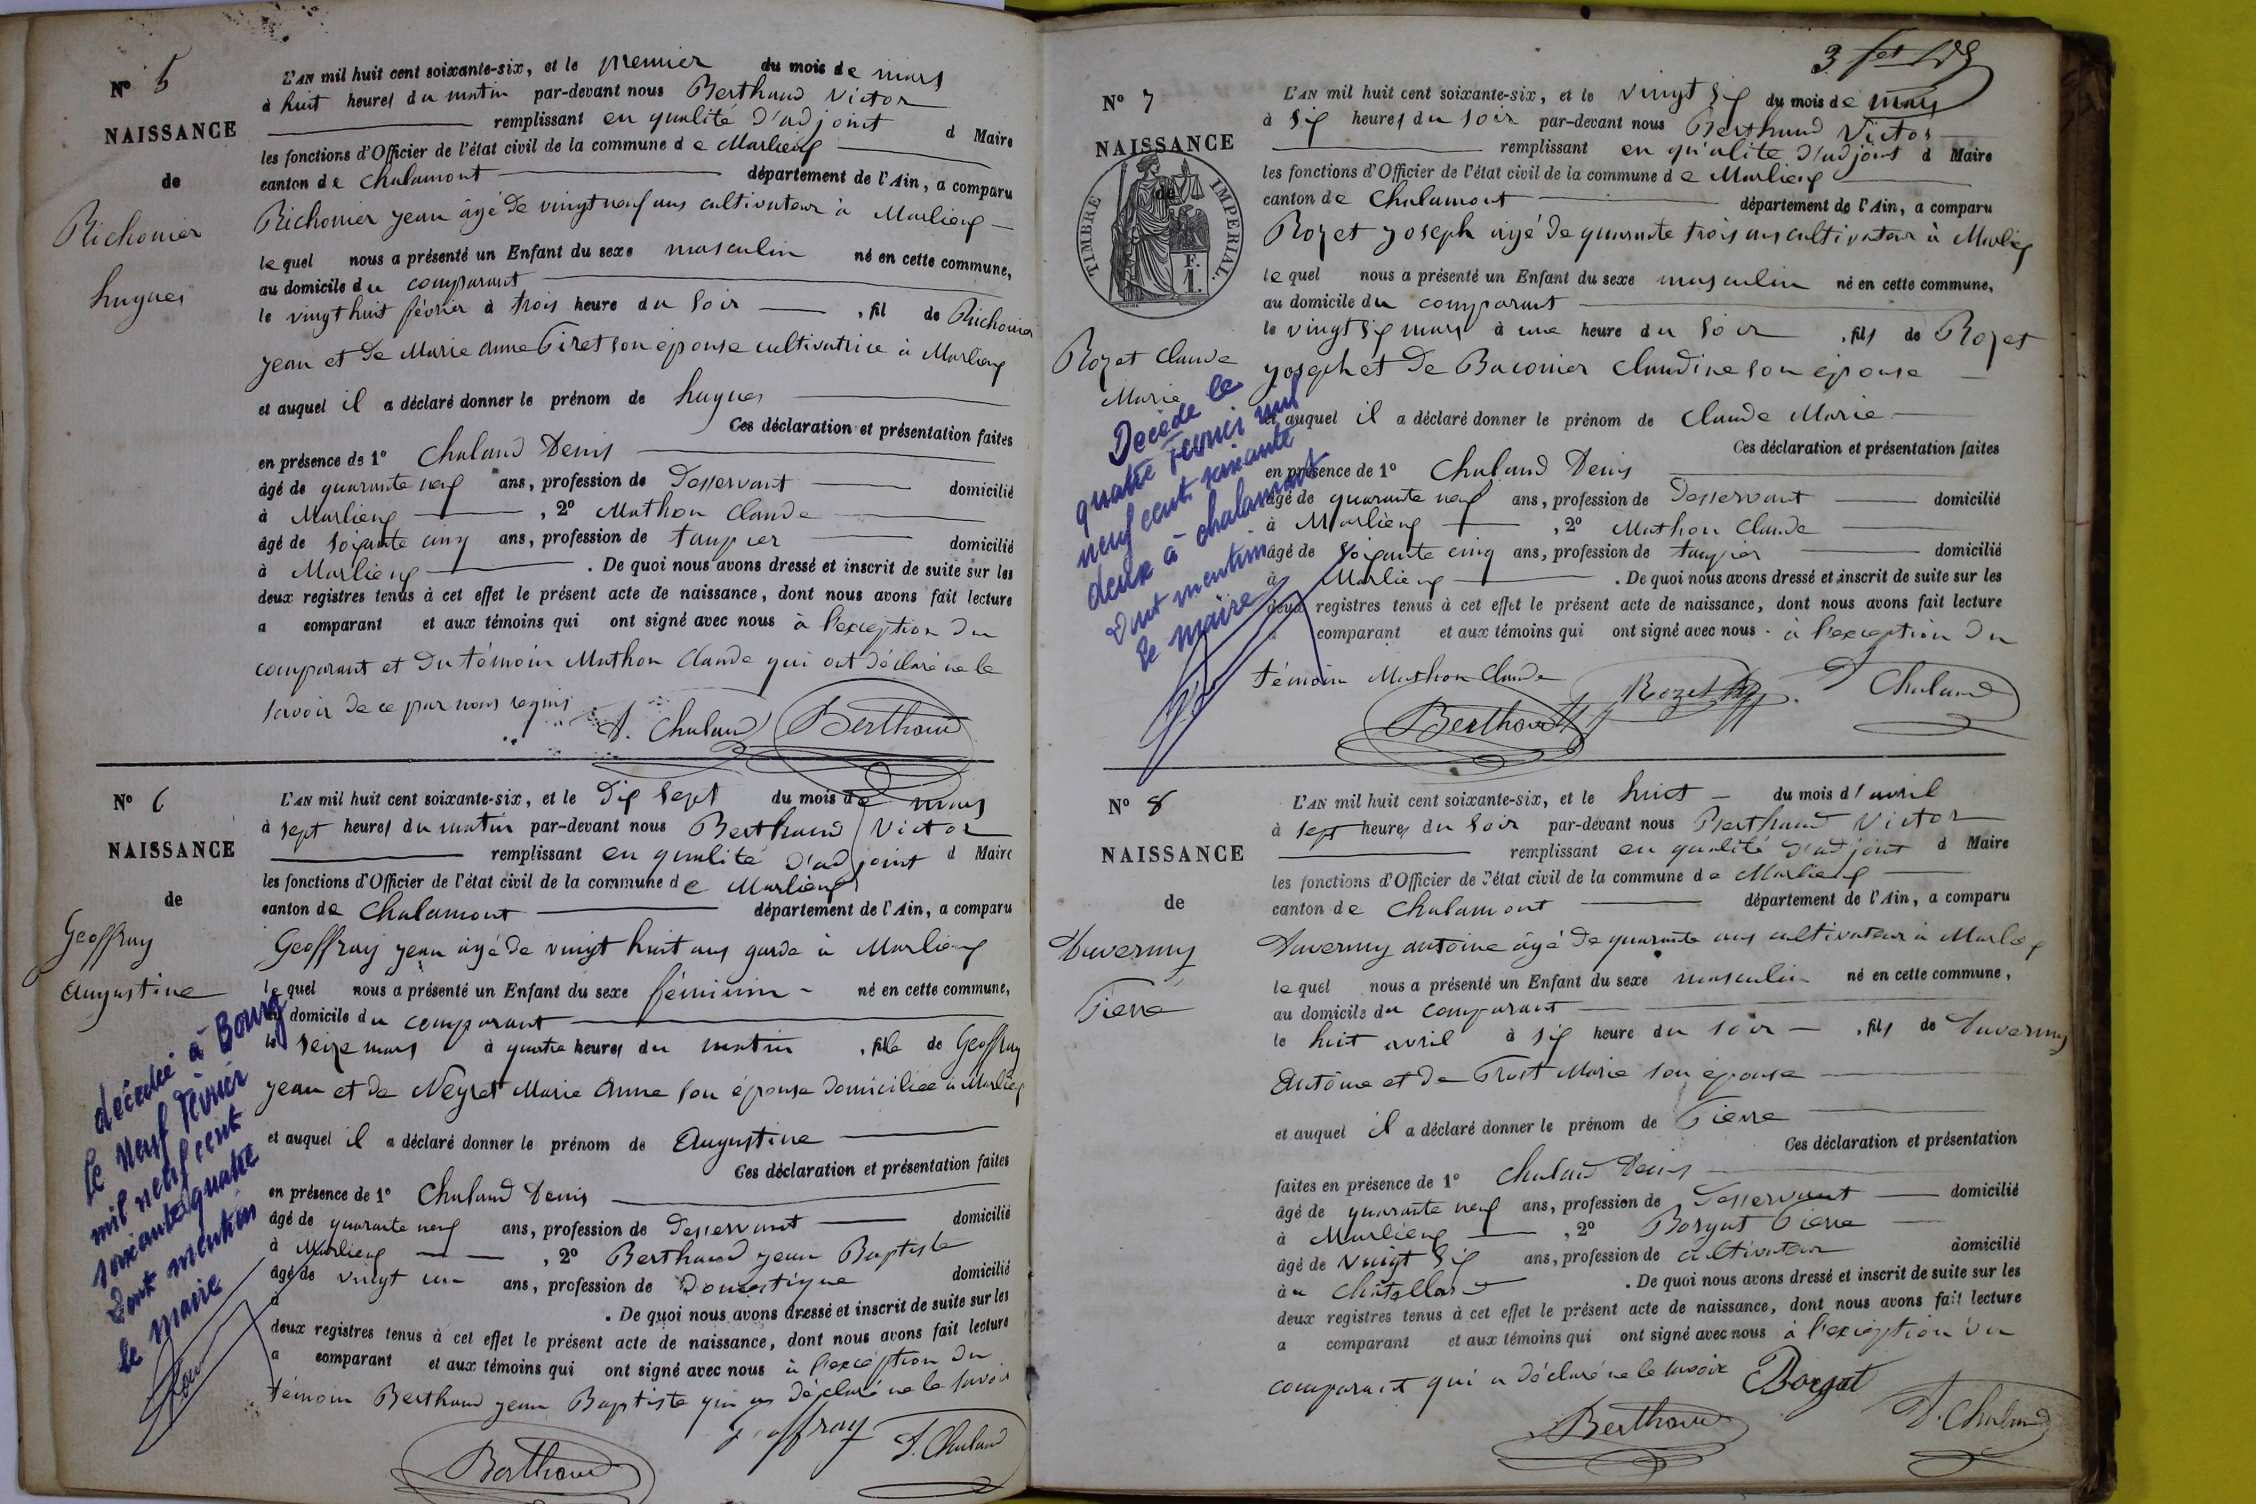 N° 5
NAISSANCE
de
Richonier
hugues
L'AN mil huit cent soixante-six, et le premier du mois de mars
à huit heures du matin par-devant nous Berthaud Victor
remplissant en qualité d'adjoint d Maire
les fonctions d'Officier de l'état civil de la commune de Marlieux
canton de Chalamont département de l'Ain, a comparu
Richonier jean âgé de vingt neuf ans cultivateur à Marlieux
lequel nous a présenté un Enfant du sexe masculin né en cette commune,
au domicile du comparant
le vingt huit février à trois heure du soir , fil de Richonier
jean et de Marie anne son épouse cultivatrice à Marlieux
et auquel il a déclaré donner le prénom de hugues
Ces déclaration et présentation faites
en présence de 1° Chaland Denis
âgé de quarante neuf ans, profession de Desservant domicilié
à Marlieux , 2° Mathon Claude
âgé de soixante cinq ans, profession de taupier domicilié
à Marlieux . De quoi nous avons dressé et inscrit de suite sur les
deux registres tenus à cet effet le présent acte de naissance, dont nous avons fait lecture
a comparant et aux témoins qui ont signé avec nous à l'exception du
comparant et du témoin Mathon Claude qui ont déclaré ne le
savoir de ce par nous requis
D. Chaland Berthaud
N° 6
NAISSANCE
de
Geoffray
Augustine
décédée à Bourg
le neuf Février
mil neuf cent
soixante quatre
Dont mention
le maire
L'AN mil huit cent soixante-six, et le dix sept du mois de mars
à sept heures du matin par-devant nous Berthaud Victor
remplissant en qualité d'adjoint d Maire
les fonctions d'Officier de l'état civil de la commune de Marlieux
canton de Chalamont département de l'Ain, a comparu
Geoffray jean âgé de vingt huit ans garde à Marlieux
lequel nous a présenté un Enfant du sexe féminin né en cette commune,
au domicile du comparant
le seize mars à quatre heures du matin , fille de Geoffray
jean et de Neyret Marie Anne son épouse domiciliée à Marlieux
et auquel il a déclaré donner le prénom de Augustine
Ces déclaration et présentation faites
en présence de 1° Chaland Denis
âgé de quarante neuf ans, profession de Desservant domicilié
à Marlieux , 2° Berthaud jean Baptiste
âgé de vingt un ans, profession de Domestique domicilié
à . De quoi nous avons dressé et inscrit de suite sur les
deux registres tenus à cet effet le présent acte de naissance, dont nous avons fait lecture
a comparant et aux témoins qui ont signé avec nous à l'exception du
témoin Berthaud jean Baptiste qui a déclaré ne le savoir
Geoffray D. Chaland
Berthaud
N° 7
NAISSANCE
de
TIMBRE IMPERIAL.
F.
1.
Rozet Claude
Marie
Décédé le
quatre Février mil
neuf cent soixante
deux à chalamont
Dont mention
le maire
L'AN mil huit cent soixante-six, et le vingt six du mois de mars
à six heures du soir par-devant nous Berthaud Victor
remplissant en qualité d'adjoint d Maire
les fonctions d'Officier de l'état civil de la commune de Marlieux
canton de Chalamont département de l'Ain, a comparu
Rozet joseph âgé de quarante trois ans cultivateur à Marlieux
lequel nous a présenté un Enfant du sexe masculin né en cette commune,
au domicile du comparant
le vingt six mars à une heure du soir , fils de Rozet
joseph et de Baconier Claudine son épouse
et auquel il a déclaré donner le prénom de Claude Marie
Ces déclaration et présentation faites
en présence de 1° Chaland Denis
âgé de quarante neuf ans, profession de Desservant domicilié
à Marlieux , 2° Mathon Claude
âgé de soixante cinq ans, profession de taupier domicilié
à Marlieux . De quoi nous avons dressé et inscrit de suite sur les
deux registres tenus à cet effet le présent acte de naissance, dont nous avons fait lecture
a comparant et aux témoins qui ont signé avec nous à l'exception du
témoin Mathon Claude
Berthaud Rozet D Chaland
N° 8
NAISSANCE
de
Duverney
Pierre
L'AN mil huit cent soixante-six, et le huit du mois d'avril
à sept heures du soir par-devant nous Berthaud Victor
remplissant en qualité d'adjoint d Maire
les fonctions d'Officier de l'état civil de la commune de Marlieux
canton de Chalamont département de l'Ain, a comparu
Duverney antoine âgé de quarante ans cultivateur à Marlieux
lequel nous a présenté un Enfant du sexe masculin né en cette commune,
au domicile du comparant
le huit avril à six heure du soir , fils de Duverney
Antoine et de Marie son épouse
et auquel il a déclaré donner le prénom de Pierre
Ces déclaration et présentation
faites en présence de 1° Chaland Denis
âgé de quarante neuf ans, profession de Desservant domicilié
à Marlieux , 2° Borgat Pierre
âgé de vingt six ans, profession de cultivateur domicilié
au Chatellard . De quoi nous avons dressé et inscrit de suite sur les
deux registres tenus à cet effet le présent acte de naissance, dont nous avons fait lecture
a comparant et aux témoins qui ont signé avec nous à l'exception du
comparant qui a déclaré ne le savoir Borgat
Berthaud D. Chaland